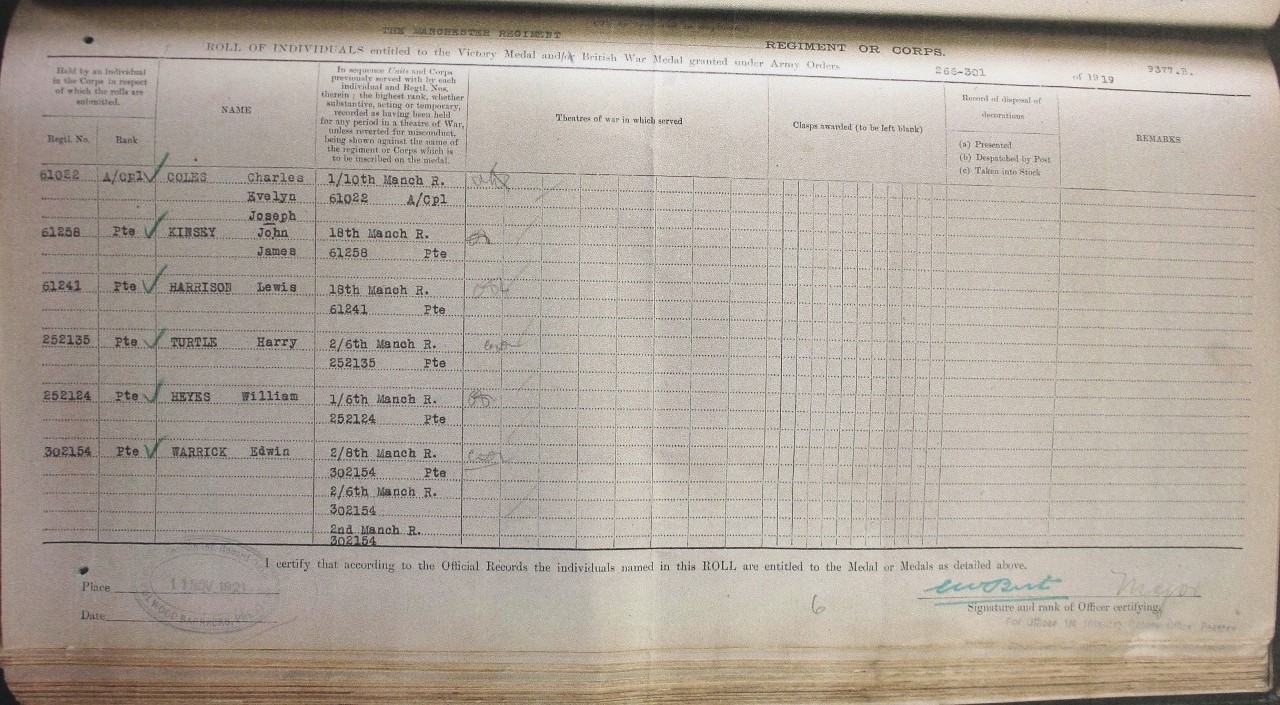 THE MANCHESTER REGIMENT
REGIMENT OR CORPS.
ROLL OF INDIVIDUALS entitled to the Victory Medal and/or British War Medal granted under Army Orders
266-301 of 1919 9377.B.
Held by an Individual
in the Corps in respect
of which the rolls are
submitted.
Regtl. No. Rank
NAME
In sequence Units and Corps
previously served with by each
individual and Regtl. Nos.
therein ; the highest rank, whether
substantive, acting or temporary,
recorded as having been held
for any period in a theatre of War,
unless reverted for misconduct,
being shown against the name of
the regiment or Corps which is
to be inscribed on the medal.
Theatres of war in which served
Clasps awarded (to be left blank)
Record of disposal of
decorations
(a) Presented
(b) Despatched by Post
(c) Taken into Stock
REMARKS
61022 A/Cpl COLES Charles 1/10th Manch R.
Evelyn 61022 A/Cpl
Joseph
61258 Pte KINSEY John 18th Manch R.
James 61258 Pte
61241 Pte HARRISON Lewis 18th Manch R.
61241 Pte
252135 Pte TURTLE Harry 2/6th Manch R.
252135 Pte
252124 Pte HEYES William 1/6th Manch R.
252124 Pte
302154 Pte WARRICK Edwin 2/8th Manch R.
302154 Pte
2/6th Manch R.
302154
2nd Manch R.
302154
I certify that according to the Official Records the individuals named in this ROLL are entitled to the Medal or Medals as detailed above.
Place
11 NOV 1921
Date
6
Major
Signature and rank of Officer certifying.